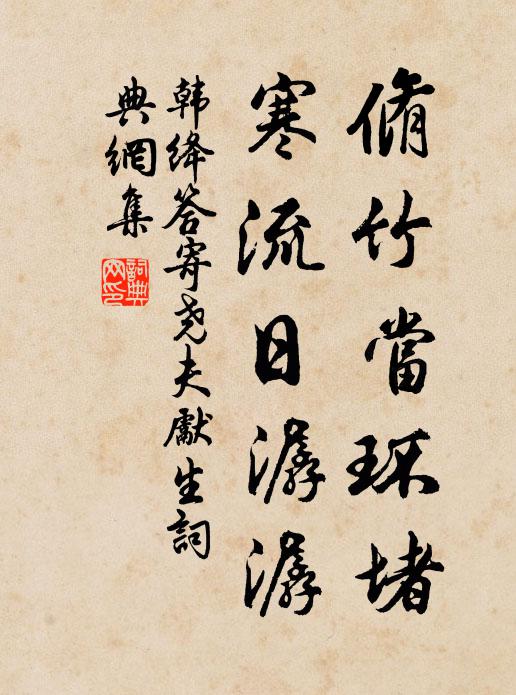 脩竹當环堵
寒流日潺潺
韩绛答寄尧夫獻生詞
典網集
詞典网印